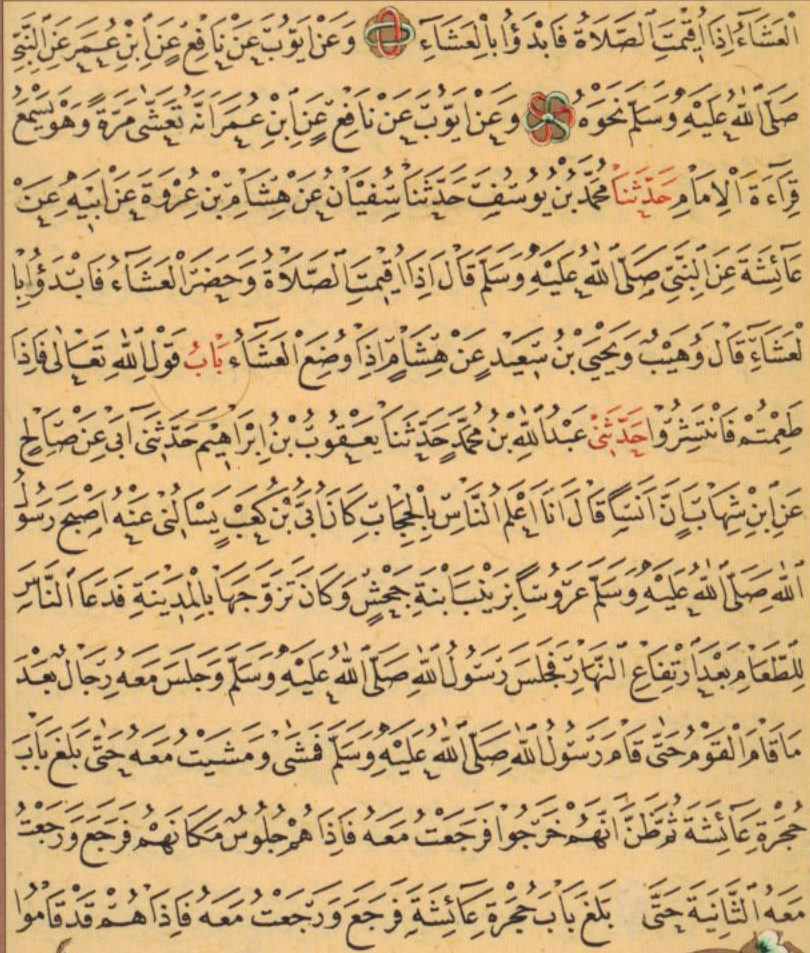 الْعَشَاءُ اِذَا اُقِيمَتِ الصَّلَاةُ فَابْدَؤُا بِالْعَشَاءِ وَعَنْ اَيُّوبَ عَنْ نَافِعٍ عَنِ ابْنِ عُمَرَ عَنِ النَّبِيِّ
صَلَّى اللّٰهُ عَلَيْهِ وَسَلَّمَ نَحْوَهُ وَعَنْ اَيُّوبَ عَنْ نَافِعٍ عَنِ ابْنِ عُمَرَ اَنَّهُ تَعَشّٰى مَرَّةً وَهُوَ يَسْمَعُ
قِرَاءَةَ الْاِمَامِ حَدَّثَنَا مُحَمَّدُ بْنُ يُوسُفَ حَدَّثَنَا سُفْيَانُ عَنْ هِشَامِ بْنِ عُرْوَةَ عَنْ اَبِيهِ عَنْ
عَائِشَةَ عَنِ النَّبِيِّ صَلَّى اللّٰهُ عَلَيْهِ وَسَلَّمَ قَالَ اِذَا اُقِيمَتِ الصَّلَاةُ وَحَضَرَ الْعَشَاءُ فَابْدَؤُا بِا
لْعَشَاءِ قَالَ وُهَيْبٌ وَيَحْيَى بْنُ سَعِيدٍ عَنْ هِشَامٍ اِذَا وُضِعَ الْعَشَاءُ بَابُ قَوْلِ اللّٰهِ تَعَالٰى فَاِذَا
طَعِمْتُمْ فَانْتَشِرُوا حَدَّثَنِى عَبْدُ اللّٰهِ بْنُ مُحَمَّدٍ حَدَّثَنَا يَعْقُوبُ بْنُ اِبْرَاهِيمَ حَدَّثَنِى اَبِى عَنْ صَالِحٍ
عَنِ ابْنِ شِهَابٍ اَنَّ اَنَسًا قَالَ اَنَا اَعْلَمُ النَّاسِ بِالْحِجَابِ كَانَ اُبَيُّ بْنُ كَعْبٍ يَسْاَلُنِى عَنْهُ اَصْبَحَ رَسُولُ
اللّٰهِ صَلَّى اللّٰهُ عَلَيْهِ وَسَلَّمَ عَرُوسًا بِزَيْنَبَ ابْنَةِ جَحْشٍ وَكَانَ تَزَوَّجَهَا بِالْمَدِينَةِ فَدَعَا النَّاسَ
لِلطَّعَامِ بَعْدَ ارْتِفَاعِ النَّهَارِ فَجَلَسَ رَسُولُ اللّٰهِ صَلَّى اللّٰهُ عَلَيْهِ وَسَلَّمَ وَجَلَسَ مَعَهُ رِجَالٌ بَعْدَ
مَا قَامَ الْقَوْمُ حَتّٰى قَامَ رَسُولُ اللّٰهِ صَلَّى اللّٰهُ عَلَيْهِ وَسَلَّمَ فَمَشٰى وَمَشَيْتُ مَعَهُ حَتّٰى بَلَغَ بَابَ
حُجْرَةِ عَائِشَةَ ثُمَّ ظَنَّ اَنَّهُمْ خَرَجُوا فَرَجَعْتُ مَعَهُ فَاِذَا هُمْ جُلُوسٌ مَكَانَهُمْ فَرَجَعَ وَرَجَعْتُ
مَعَهُ الثَّانِيَةَ حَتّٰى بَلَغَ بَابَ حُجْرَةِ عَائِشَةَ فَرَجَعَ وَرَجَعْتُ مَعَهُ فَاِذَا هُمْ قَدْ قَامُوا